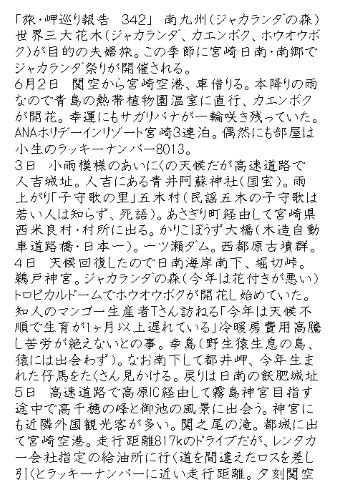 「旅・岬巡り報告　342」　南九州(ジャカランダの森)
世界三大花木(ジャカランダ、カエンボク、ホウオウボ
ク)が目的の夫婦旅。この季節に宮崎日南・南郷で
ジャカランダ祭りが開催される。
6月2日　関空から宮崎空港、車借りる。本降りの雨
なので青島の熱帯植物園温室に直行、カエンボク
が開花。幸運にもサガリバナが一輪咲き残っていた。
ANAホリデーインリゾート宮崎3連泊。偶然にも部屋は
小生のラッキーナンバー8013。
3日　小雨模様のあいにくの天候だが高速道路で
人吉城址。人吉にある青井阿蘇神社(国宝)。雨
上がり「子守歌の里」五木村(民謡五木の子守歌は
若い人は知らず、死語)。あさぎり町経由して宮崎県
西米良村・村所に出る。かりこぼうず大橋(木造自動
車道路橋・日本一)。一ツ瀬ダム。西都原古墳群。
4日　天候回復したので日南海岸南下、堀切峠。
鵜戸神宮。ジャカランダの森(今年は花付きが悪い)
トロピカルドームでホウオウボクが開花し始めていた。
知人のマンゴー生産者Tさん訪ねる「今年は天候不
順で生育が1ヶ月以上遅れている」冷暖房費用高騰
し苦労が絶えないとの事。幸島(野生猿生息の島、
猿には出会わず)。なお南下して都井岬、今年生ま
れた仔馬をたくさん見かける。戻りは日南の飫肥城址
5日　高速道路で高原IC経由して霧島神宮目指す
途中で高千穂の峰と御池の風景に出会う。神宮に
も近隣外国観光客が多い。関之尾の滝。都城に出
て宮崎空港。走行距離817kのドライブだが、レンタカ
ー会社指定の給油所に行く道を間違えたロスを差し
引くとラッキーナンバーに近い走行距離。夕刻関空